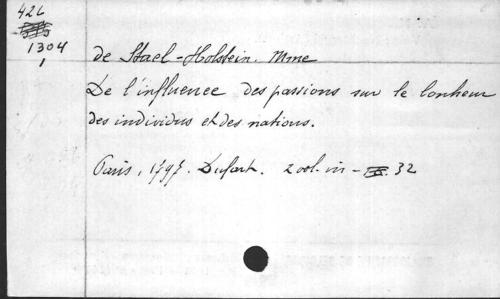 426
1304
1
de Stael-Holstein. Mme
De l'influence des passions sur le bonheur
des individus et des nations.
Paris, 1797. Dufart. 2 vol. in - 32